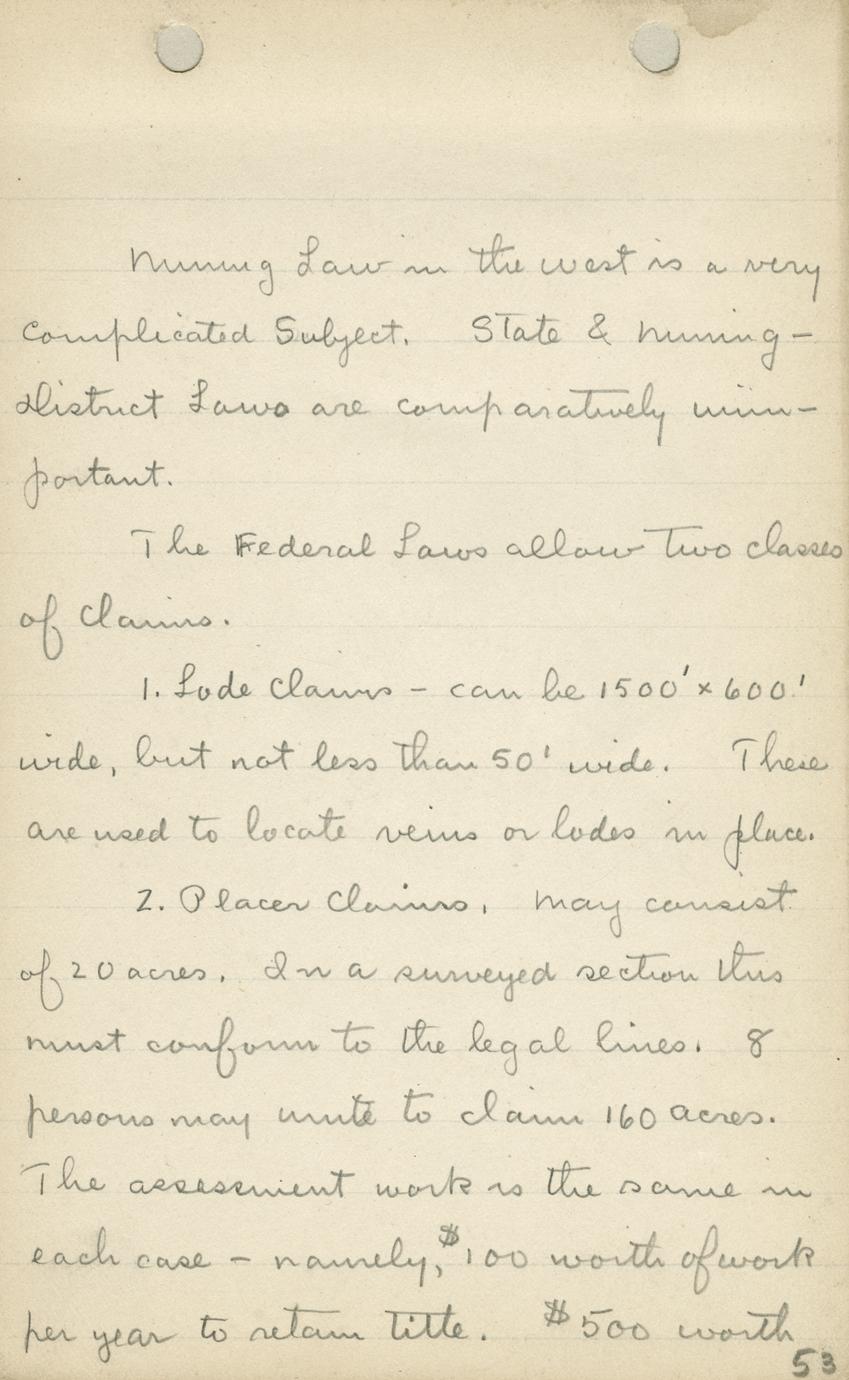 Mining Law in the west is a very
complicated Subject. State & Mining-
District Laws are comparatively unim-
portant.
The Federal Laws allow Two classes
of Claims.
1. Lode Claims - can be 1500' x 600'
wide, but not less than 50' wide. These
are used to locate veins or lodes in place.
2. Placer Claims, may consist
of 20 acres. In a surveyed section this
must conform to the legal lines. 8
persons may unite to claim 160 acres.
The assessment work is the same in
each case - namely, $100 worth of work
per year to retain title. $500 worth
53